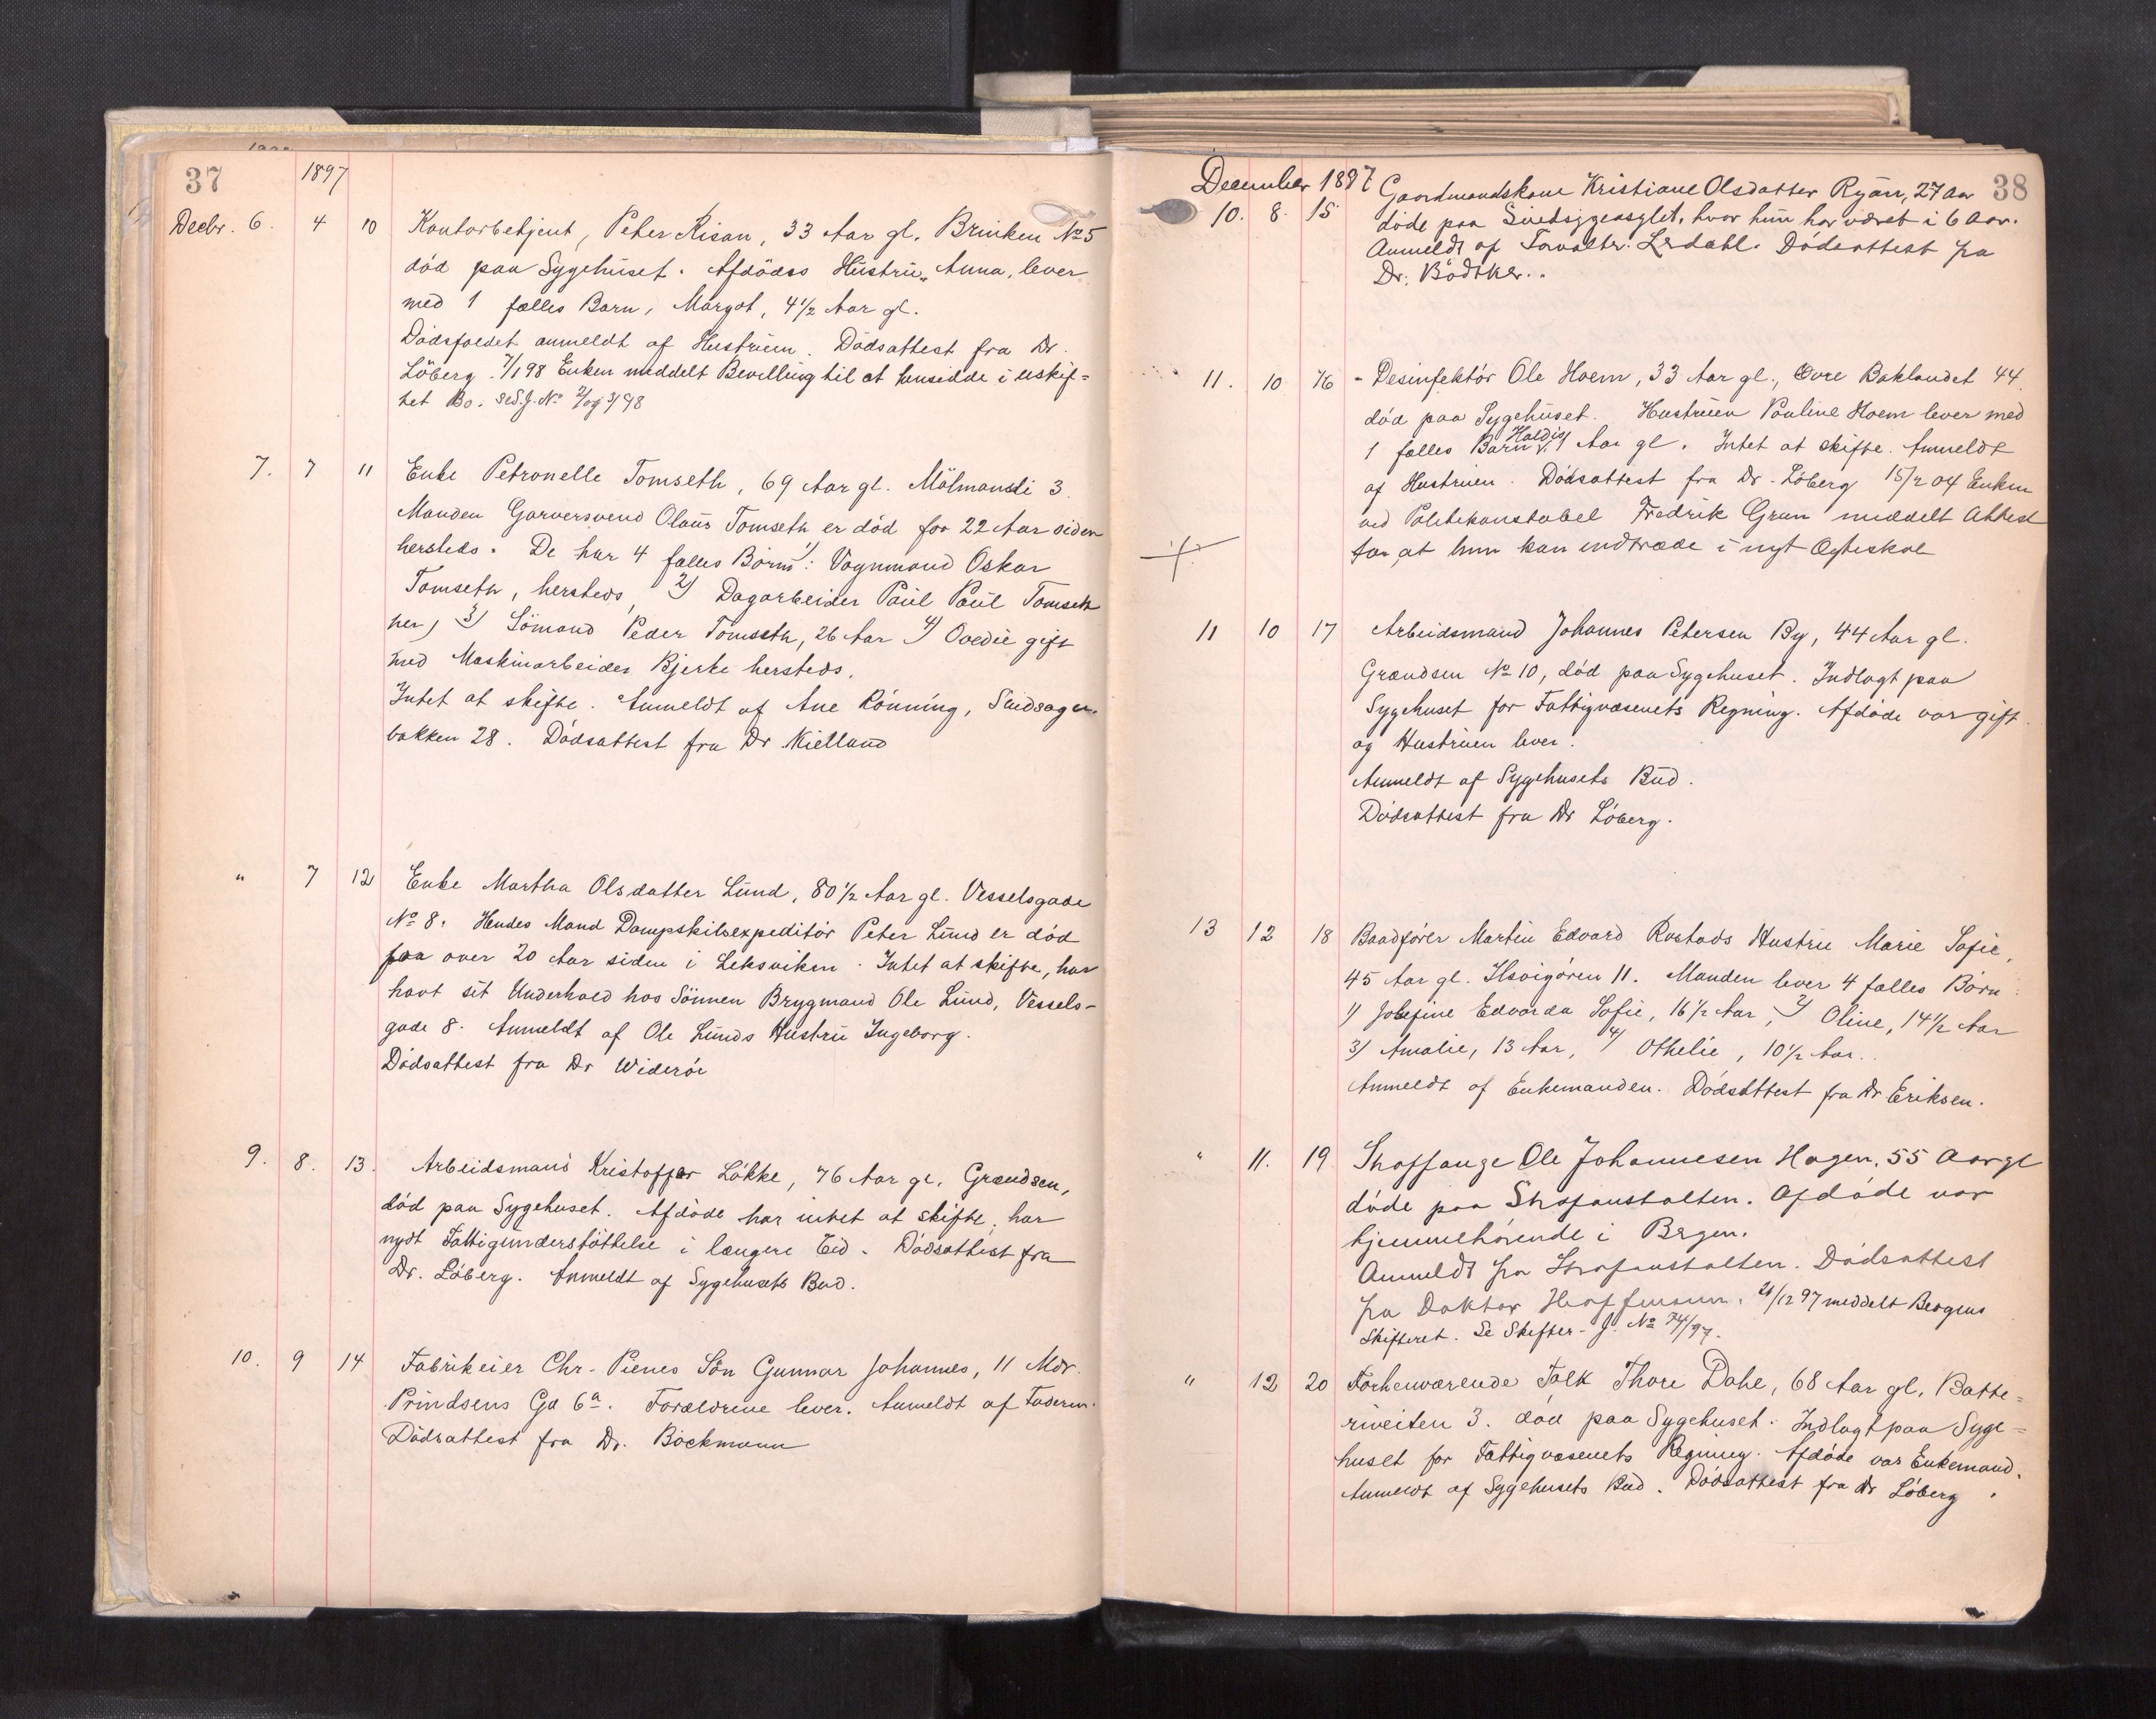 37
1897
Decbr. 6. 4 10 Kontorbetjent, Peter Risan, 33 Aar gl. Brinken No 5
död paa Sygehuset. Afdödes Hustru, Anna, lever
med 1 fælles Barn, Margot, 4 1/2 Aar gl.
Dödsfaldet anmeldt af Hustruen. Dödsattest fra Dr.
Löberg. 7/1 98 Enken meddelt Bevilling til at hensidde i uskif-
tet Bo. Se S.J. No 2/og 3/98
7. 7 11 Enke Petronelle Tomseth, 69 Aar gl. Mölmansli 3.
Manden Garversvend Olaus Tomseth er död for 22 Aar siden
hersteds. De har 4 fælles Börn: 1) Vognmand Oskar
Tomseth, hersteds, 2) Dagarbeider Paul Paul Tomseth
her, 3) Sömand Peder Tomseth, 26 Aar 4) Ovedie gift
med Maskinarbeider Bjerke hersteds.
Intet at skifte. Anmeldt af Ane Rönning, Steds
bakken 28. Dödsattest fra Dr Kielland
" 7 12 Enke Martha Olsdatter Lund, 80 1/2 Aar gl. Vesselsgade
No 8. Hendes Mand Dampskibsexpeditör Peter Lund er död
for over 20 Aar siden i Leksviken. Intet at skifte, har
havt sit Underhold hos Sönnen Brygmand Ole Lund, Vessels-
gade 8. Anmeldt af Ole Lunds Hustru Ingeborg.
Dödsattest fra Dr Wideröe
9. 8. 13. Arbeidsmand Kristoffer Lökke, 76 Aar gl. Grændsen,
död paa Sygehuset. Afdöde har intet at skifte, har
nydt Fattigunderstöttelse i længere Tid. Dödsattest fra
Dr. Löberg. Anmeldt af Sygehusets Bud.
10. 9 14 Fabrikeier Chr. Pienes Sön Gunnar Johannes, 11 Mdr.
Prindsens Gd 6a. Forældrene lever. Anmeldt af Faderen.
Dödsattest fra Dr. Böckmann
December 1897
38
10. 8. 15 Gaardmandskone Kristiane Olsdatter Ryan, 27 Aar
döde paa Sindsygeasylet, hvor hun har været i 6 Aar.
Anmeldt af Forvalter Lerdahl. Dödsattest fra
Dr. Bödtker.
11. 10 16 Desinfektör Ole Hoem, 33 Aar gl., Övre Baklandet 44.
död paa Sygehuset. Hustruen Pauline Hoem lever med
1 fælles Barn Haldis, 1 Aar gl. Intet at skifte. Anmeldt
af Hustruen. Dödsattest fra Dr. Löberg 15/2 04 Enken
ved Politikonstabel Fredrik Gran meddelt Attest
for, at hun kan indtræde i nyt Ægteskab
11 10 17 Arbeidsmand Johannes Petersen By, 44 Aar gl.
Grændsen No 10, död paa Sygehuset. Indlagt paa
Sygehuset for Fattigvæsenets Regning. Afdöde var gift
og Hustruen lever.
Anmeldt af Sygehusets Bud.
Dödsattest fra Dr Löberg.
13 12 18 Baadförer Martin Edvard Rostads Hustru Marie Sofie,
45 Aar gl. Ilsvigören 11. Manden lever 4 fælles Börn:
1) Josefine Edvarda Sofie, 16 1/2 Aar, 2) Oline, 14 1/2 Aar
3) Amalie, 13 Aar, 4) Othelie, 10 1/2 Aar.
Anmeldt af Enkemanden. Dödsattest fra Dr. Eriksen.
" 11. 19 Straffange Ole Johannesen Hagen, 55 Aar gl
döde paa Strafanstalten. Afdöde var
hjemmehörende i Bergen.
Anmeldt fra Strafanstalten. Dödsattest
fra Doktor Hoffmann. 21/12 97 meddelt Bergens
Skifteret. Se Skifter-J. No 74/97.
" 12 20 Forhenværende Tolk Thore Dahl, 68 Aar gl. Batte-
riveiten 3. död paa Sygehuset. Indlagt paa Syge-
huset for Fattigvæsenets Regning. Afdöde var Enkemand.
Anmeldt af Sygehusets Bud. Dödsattest fra Dr Löberg.